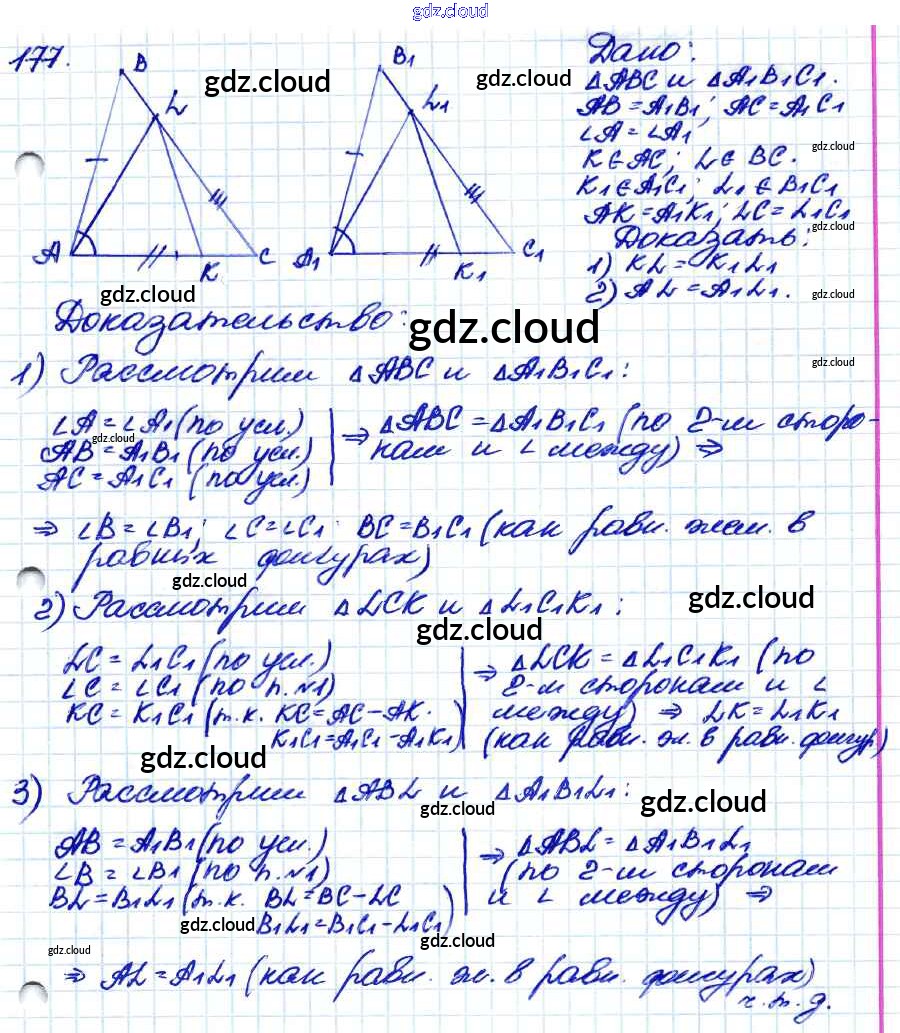 gdz.cloud
177.
B
L
A
K
C
B1
L1
A1
K1
C1
gdz.cloud
gdz.cloud
gdz.cloud
Дано:
△ABC и △A1B1C1.
AB = A1B1; AC = A1C1
∠A = ∠A1
gdz.cloud
K ∈ AC; L ∈ BC.
K1 ∈ A1C1; L1 ∈ B1C1
AK = A1K1; LC = L1C1
gdz.cloud
Доказать:
1) KL = K1L1
2) AL = A1L1.
gdz.cloud
Доказательство:
gdz.cloud
1) Рассмотрим △ABC и △A1B1C1:
gdz.cloud
∠A = ∠A1 (по усл.)
AB = A1B1 (по усл.)
AC = A1C1 (по усл.)
gdz.cloud
⇒ △ABC = △A1B1C1 (по 2-м сторо-
нам и ∠ между) ⇒
⇒ ∠B = ∠B1; ∠C = ∠C1 BC = B1C1 (как равн. эл. в
равных фигурах)
gdz.cloud
gdz.cloud
2) Рассмотрим △LCK и △L1C1K1:
gdz.cloud
LC = L1C1 (по усл.)
∠C = ∠C1 (по п.№1)
KC = K1C1 (т.к. KC = AC - AK.
K1C1 = A1C1 - A1K1)
⇒ △LCK = △L1C1K1 (по
2-м сторонам и ∠
между) ⇒ LK = L1K1
(как равн. эл. в равн. фигур)
gdz.cloud
3) Рассмотрим △ABL и △A1B1L1:
gdz.cloud
gdz.cloud
AB = A1B1 (по усл.)
∠B = ∠B1 (по п.№1)
BL = B1L1 (т.к. BL = BC - LC
B1L1 = B1C1 - L1C1)
⇒ △ABL = △A1B1L1
(по 2-м сторонам
и ∠ между) ⇒
gdz.cloud
gdz.cloud
gdz.cloud
⇒ AL = A1L1 (как равн. эл. в равн. фигурах)
ч.т.д.